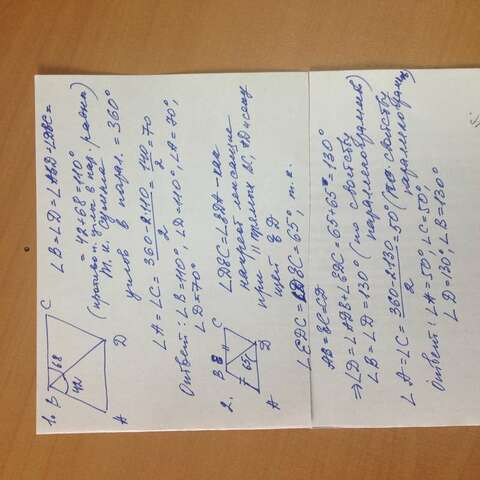 1. B C
68
42
A D
∠B=∠D=∠ABD+∠DBC=
= 42+68=110°
(противоп. углы в пар. равны)
т.к. сумма
углов в парал. = 360°
∠A=∠C= (360-2·110)/2 = 140/2 = 70
Ответ: ∠B=110°, ∠D=110°, ∠A=70°,
∠D=70°
2. B E C
65
A D
∠DEC=∠EDA - как
накрест лежащие
при || прямых BC, AD и секу
щей ED
∠EDC=∠DEC=65°, т.к.
AB=EC=CD
⇒∠D=∠ADB+∠EDC=65+65°=130°
∠B=∠D=130° (по свойству
параллелограммов)
∠A=∠C= (360-2·130)/2 =50° (по свойству
параллелограммов)
Ответ: ∠A=50°, ∠C=50°,
∠D=130°, ∠B=130°